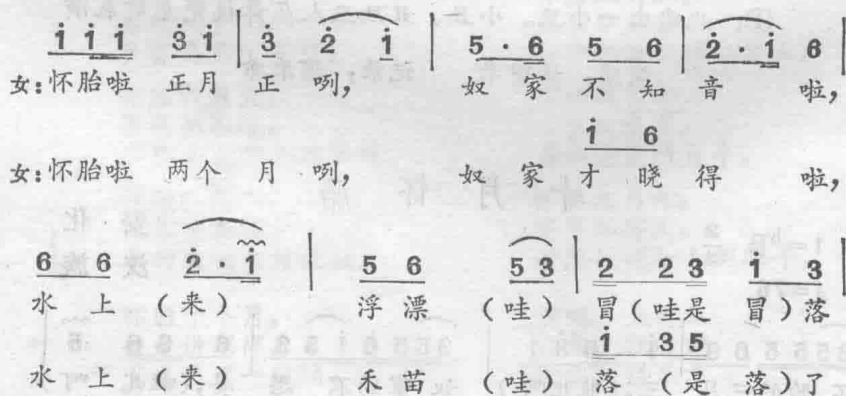 i i i 3 i | 3 2 i | 5 · 6 5 6 | 2 · i 6 |
女:怀胎啦 正月 正 咧, 奴 家 不 知 音 啦,
i 6
女:怀胎啦 两个 月 咧, 奴 家 才 晓 得 啦,
6 6 2 · i | 5 6 5 3 | 2 2 3 1 3 |
水 上 (来) 浮 漂 (哇) 冒(哇是 冒)落
i 3 5
水 上 (来) 禾 苗 (哇) 落 (是 落 了